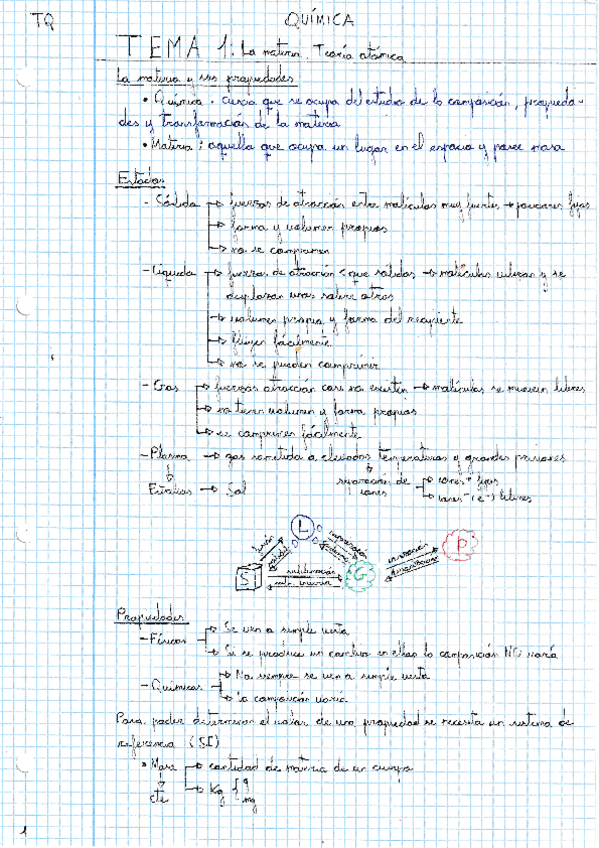 TQ
QUÍMICA
TEMA 1: La materia. Teoría atómica
La materia y sus propiedades
• Química: ciencia que se ocupa del estudio de la composición, propieda-
des y transformación de la materia
• Materia: aquella que ocupa un lugar en el espacio y posee masa
Estados
- Sólido → fuerzas de atracción entre moléculas muy fuertes → posiciones fijas
→ forma y volumen propios
→ no se comprimen
- Líquido → fuerzas de atracción < que sólidos → moléculas vibran y se
desplazan unas sobre otras
→ volumen propio y forma del recipiente
→ fluyen fácilmente
→ no se pueden comprimir
- Gas → fuerzas atracción casi no existen → moléculas se mueven libres
→ no tienen volumen y forma propios
→ se comprimen fácilmente
- Plasma → gas sometido a elevadas temperaturas y grandes presiones
Estrellas → Sol
separación de iones → iones⁺ fijos
→ iones⁻ (e⁻) libres
L
fusión
P
S
sublimación
G
Propiedades
- Físicas → Se ven a simple vista
→ Si se produce un cambio en ellas la composición NO varía
- Químicas → No siempre se ven a simple vista
→ la composición varía
Para poder determinar el valor de una propiedad se necesita un sistema de
referencia (SI)
• Masa → cantidad de materia de un cuerpo
cte → Kg { g
mg
1